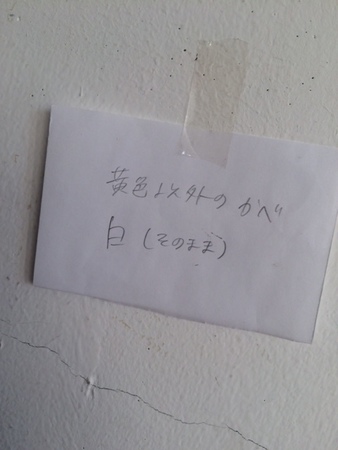 黄色以外の かべ
白 (そのまま)